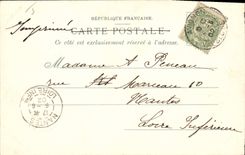 RÉPUBLIQUE FRANÇAISE
Imprimé
CARTE POSTALE
Ce côté est exclusivement réservé à l'adresse.
Madame A Pineau
rue Marceau 10
Nantes
Loire Inférieure
NANTES